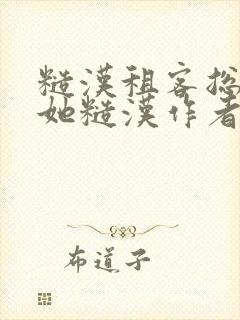 糙漢租客總
她糙漢作者
布道子